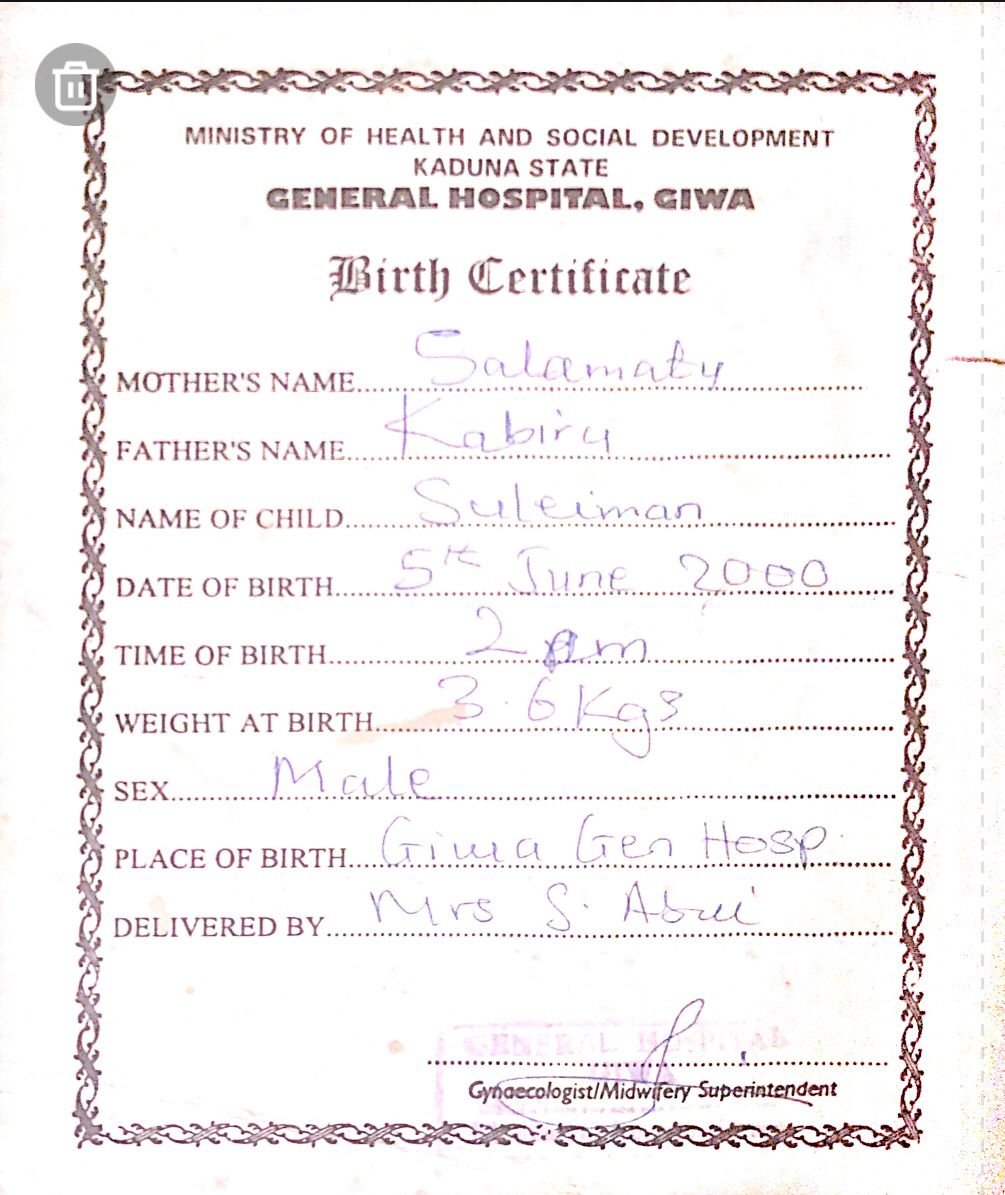 MINISTRY OF HEALTH AND SOCIAL DEVELOPMENT
KADUNA STATE
GENERAL HOSPITAL, GIWA
Birth Certificate
MOTHER'S NAME Salamatu
FATHER'S NAME Kabiru
NAME OF CHILD Suleiman
DATE OF BIRTH 5th June 2000
TIME OF BIRTH 2 pm
WEIGHT AT BIRTH 3.6 Kgs
SEX Male
PLACE OF BIRTH Giwa Gen Hosp.
DELIVERED BY Mrs S.
GENERAL HOSPITAL
GIWA
Gynaecologist/Midwifery Superintendent